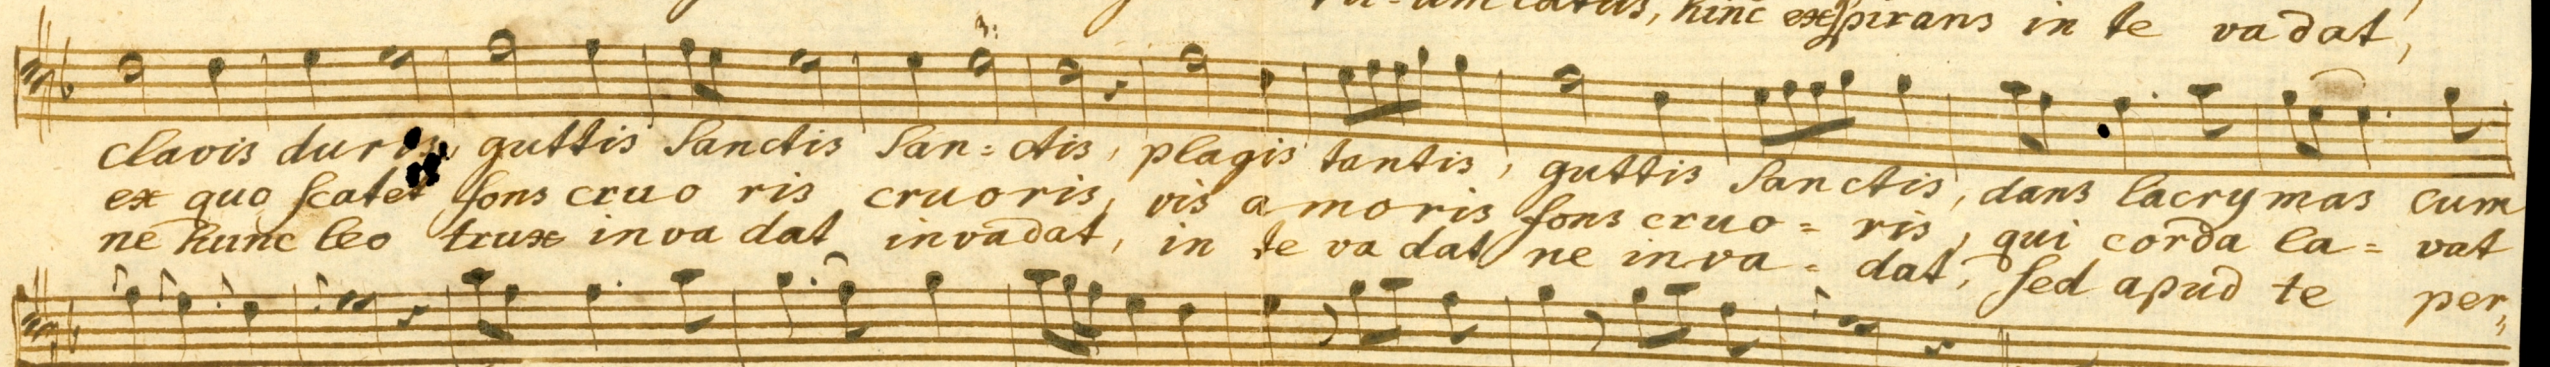 hinc exspirans in te vadat,
clavis duris, guttis Sanctis San=ctis, plagis tantis, guttis Sanctis, dans lacrymas cum
ex quo scatet fons cruo ris cruoris, vis amoris fons cruo=ris, qui corda la=vat
ne hunc leo trux inva dat invadat, in te va dat ne inva=dat, sed apud te per„